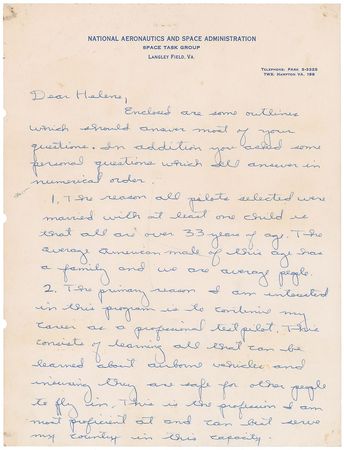 NATIONAL AERONAUTICS AND SPACE ADMINISTRATION
SPACE TASK GROUP
LANGLEY FIELD, VA.
TELEPHONE: PARK 2-3325
TWX: HAMPTON VA. 188
Dear Helene,
Enclosed are some outlines
which should answer most of your
questions. In addition you asked some
personal questions which all answer in
numerical order.
1. The reason all pilots selected were
married with at least one child is
that all are over 33 years of age. The
average American male of this age has
a family and we are average people.
2. The primary reason I am interested
in this program is to continue my
career as a professional test pilot. This
consists of learning all that can be
learned about airborne vehicles and
insuring they are safe for other people
to fly in. This is the profession I am
most proficient at and can best serve
my country in this capacity.